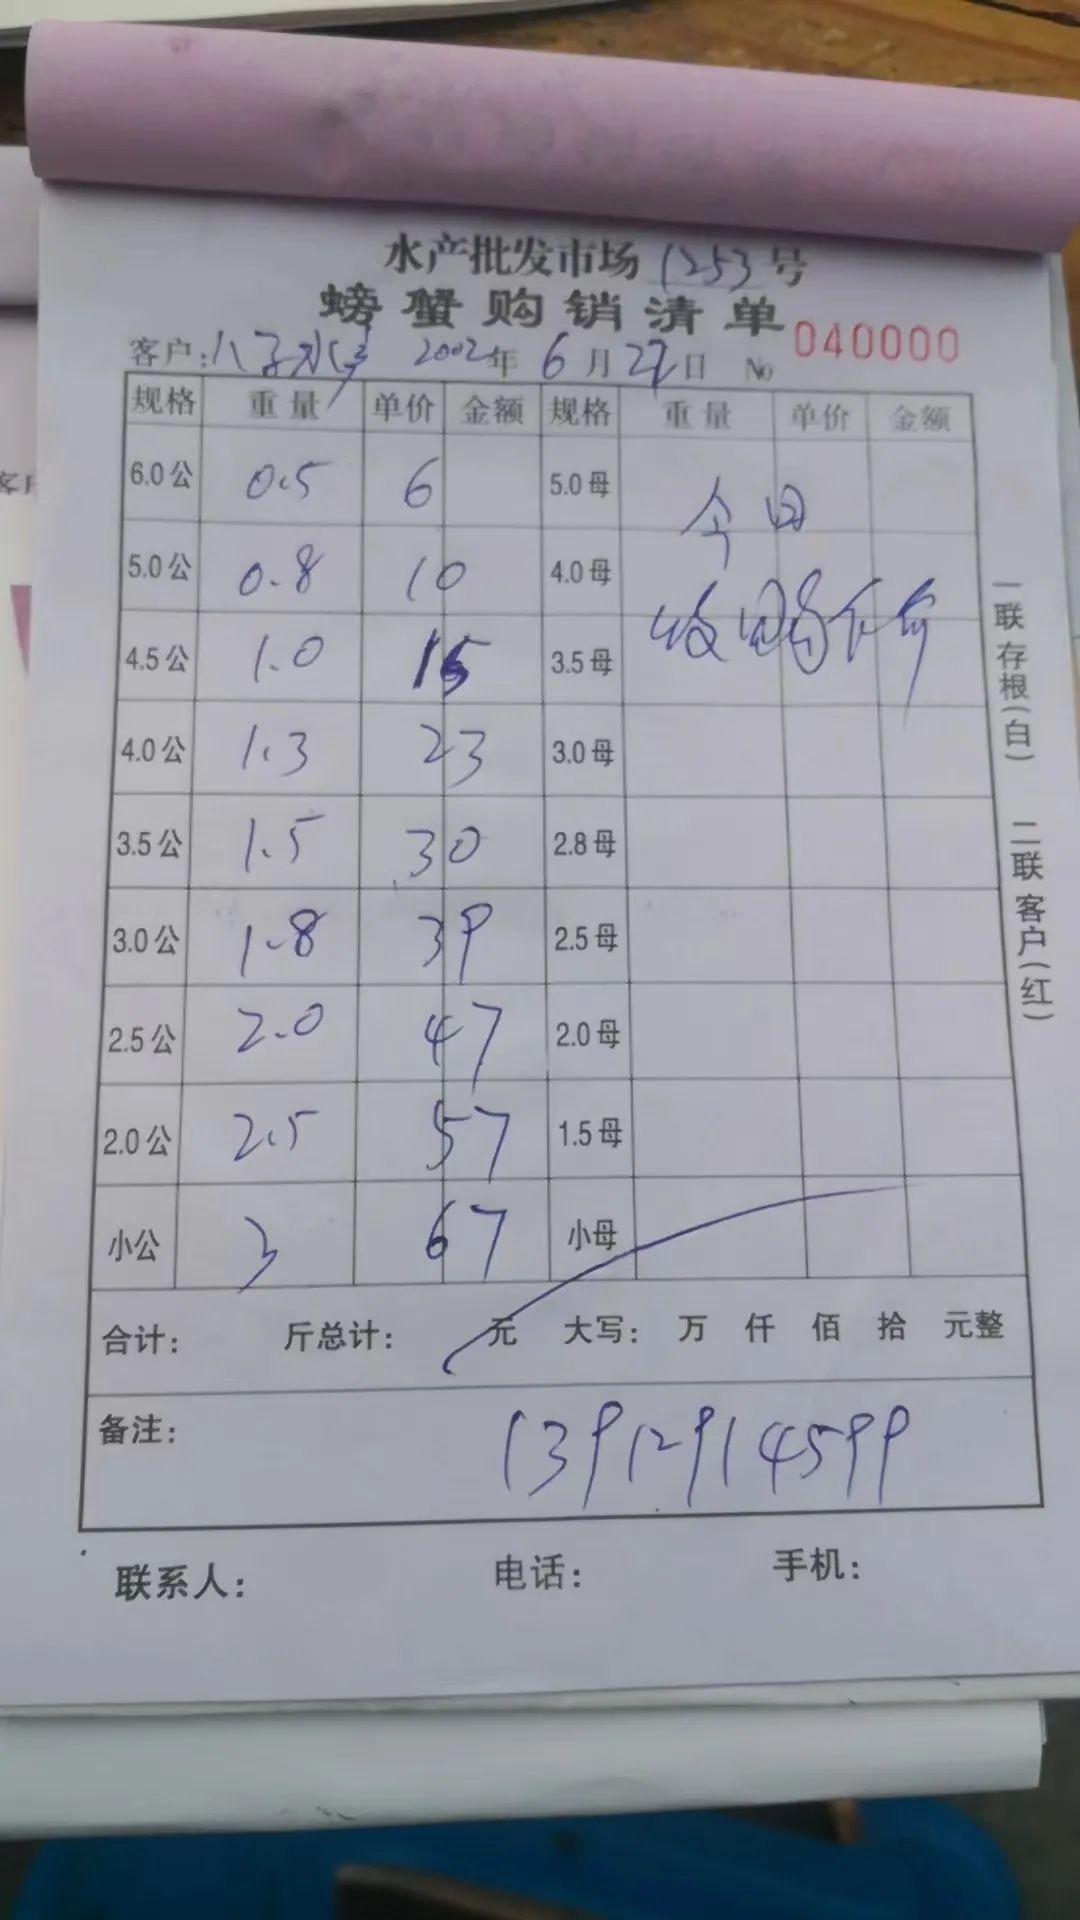 水产批发市场 1253 号
螃蟹购销清单
客户: 2002年 6月27日 No 040000
规格 重量 单价 金额 规格 重量 单价 金额
6.0公 0.5 6 5.0母 今日
5.0公 0.8 10 4.0母
4.5公 1.0 15 3.5母
4.0公 1.3 23 3.0母
3.5公 1.5 30 2.8母
3.0公 1.8 39 2.5母
2.5公 2.0 47 2.0母
2.0公 2.5 57 1.5母
小公 3 67 小母
合计: 斤总计: 元 大写: 万 仟 佰 拾 元整
备注: 13912914599
联系人: 电话: 手机:
一联存根(白) 二联客户(红)